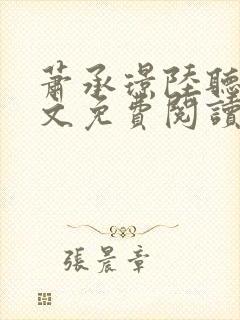 蕭承璟陸聽
文免費閱讀
張晨章